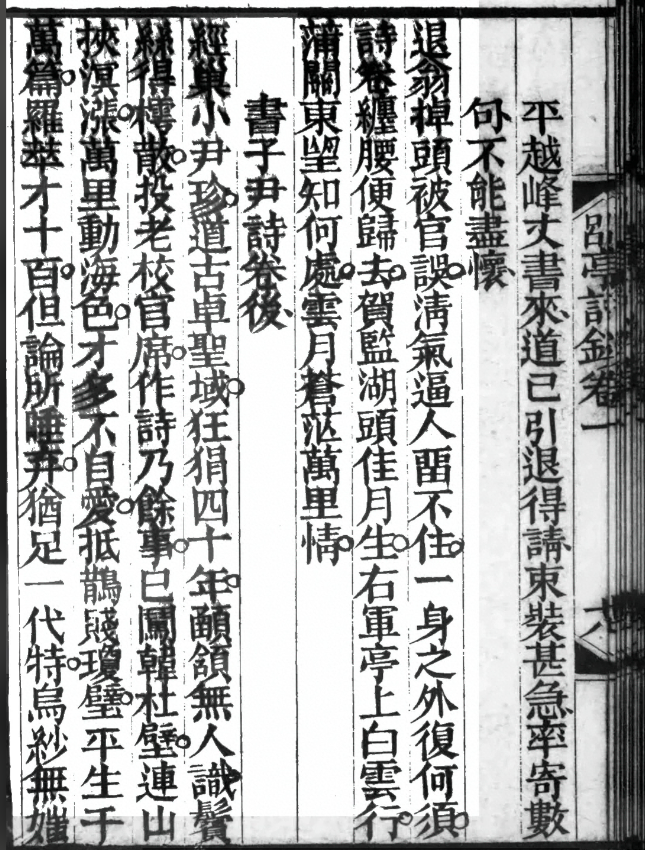 平越峰丈書來道已引退得請束裝甚急率寄數
句不能盡懷
退翁掉頭被官誤淸氣逼人畱不住一身之外復何須
詩卷纏腰便歸去賀監湖頭佳月生右軍亭上白雲行
蒲關東望知何處雲月蒼茫萬里情
書子尹詩卷後
經巢小尹珍道古卓聖域狂狷四十年顱頷無人識鬢
絲得樗散投老校官席作詩乃餘事已闖韓杜壁連山
挾溟漲萬里動海色才多不自愛抵鵲賤瓊璧平生千
萬篇羅萃才十百但論所唾弃猶足一代特烏紗無媸
邵亭詩鈔卷一
六